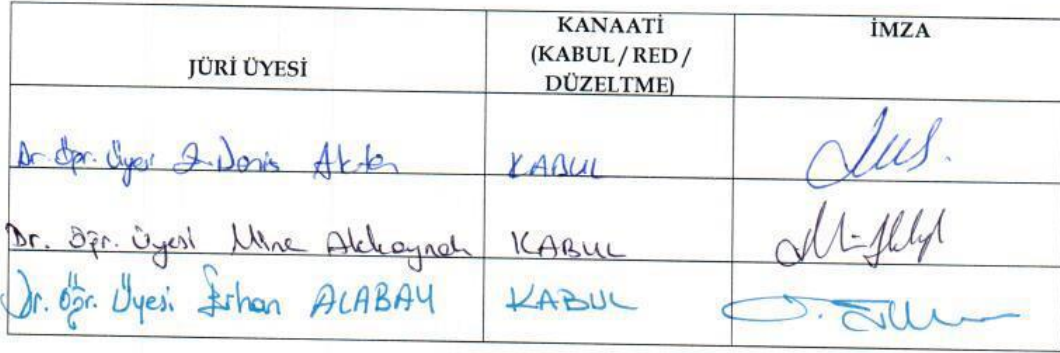 JÜRİ ÜYESİ
KANAATİ
(KABUL / RED /
DÜZELTME)
İMZA
Dr. Öğr. Üyesi Deniz KABUL
Dr. Öğr. Üyesi Mine Akkaynak KABUL
Dr. Öğr. Üyesi Erhan ALABAY KABUL